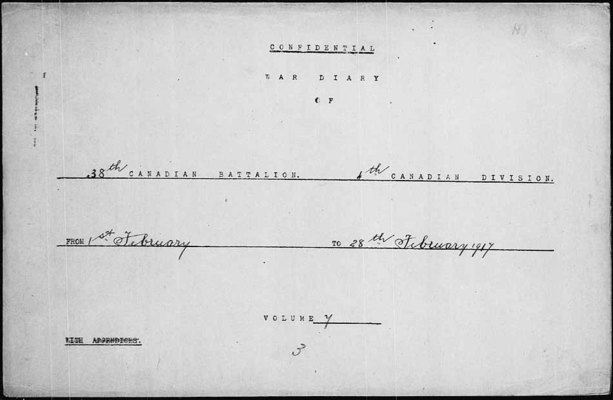 CONFIDENTIAL
WAR DIARY
OF
38th CANADIAN BATTALION. 4th CANADIAN DIVISION.
FROM 1st February TO 28th February 1917
VOLUME 7
WITH APPENDICES.
3